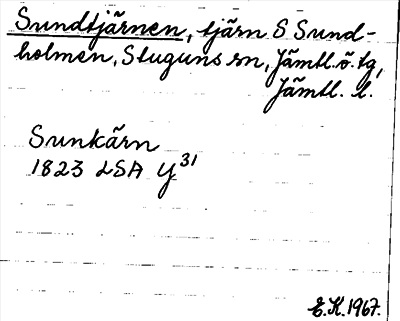 Sundtjärnen, tjärn S Sund-
holmen, Stuguns sn, Jämtl. ö. tg,
Jämtl. l.
Sunkärn
1823 LSA Y31
E.K. 1967.